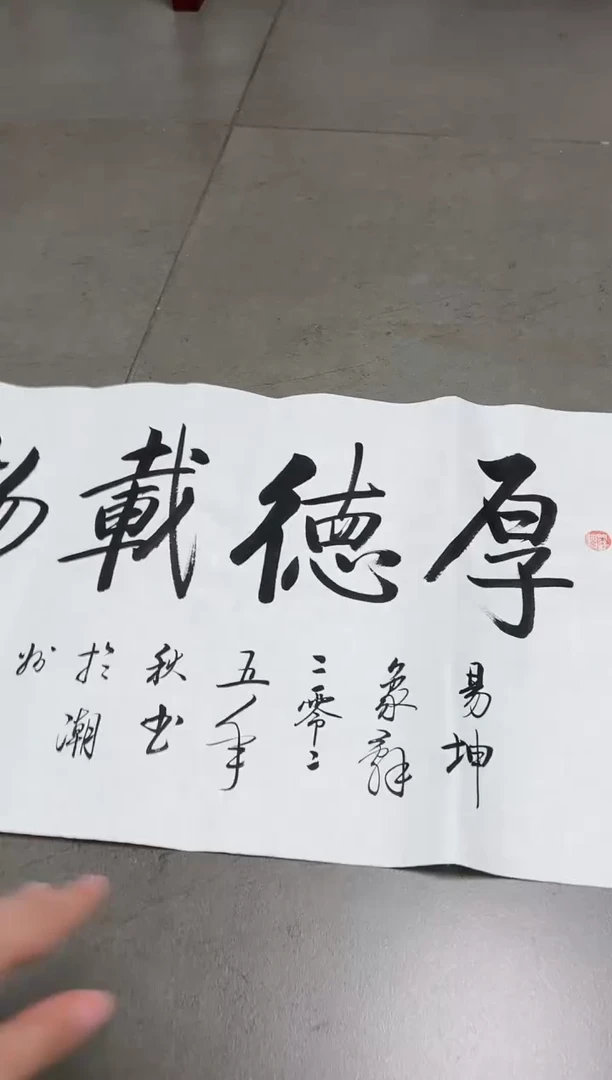 厚德載物
易坤
象辭
二零二
五年
秋书
於潮
州